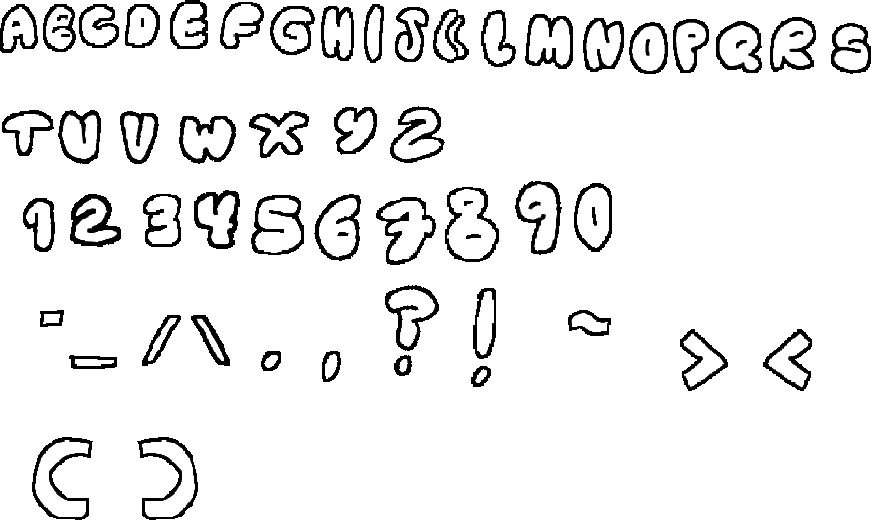 ABCDEFGHIJKLMNOPQRS
TUVWXYZ
1234567890
-_/\.,?!~><
()